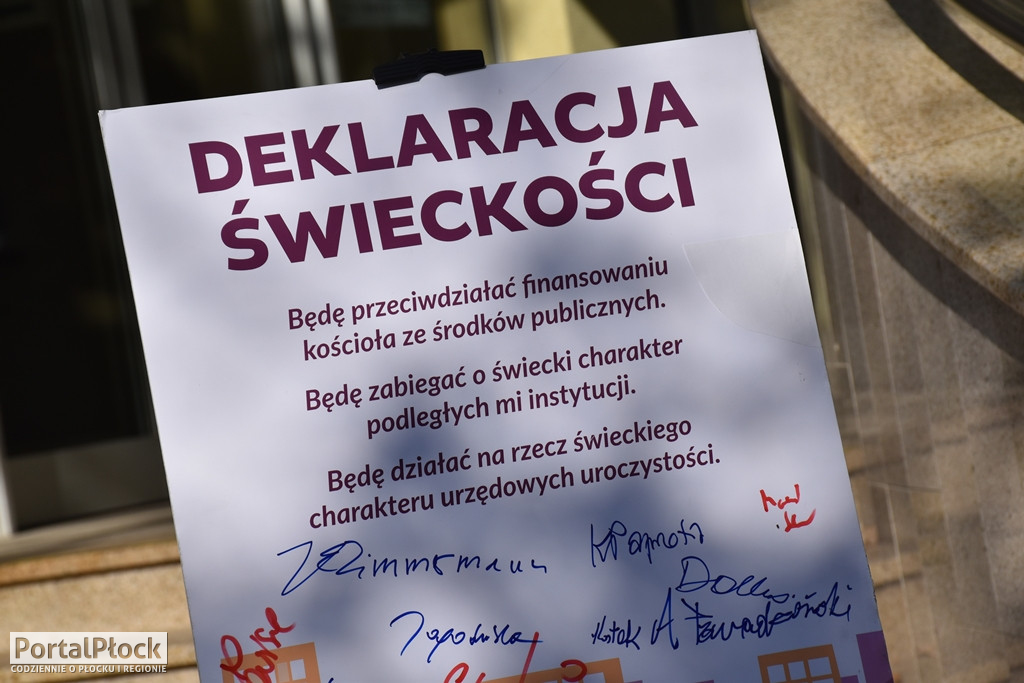 DEKLARACJA
ŚWIECKOŚCI
Będę przeciwdziałać finansowaniu
kościoła ze środków publicznych.
Będę zabiegać o świecki charakter
podległych mi instytucji.
Będę działać na rzecz świeckiego
charakteru urzędowych uroczystości.
Zimmermann
PortalPłock
CODZIENNIE O PŁOCKU I REGIONIE